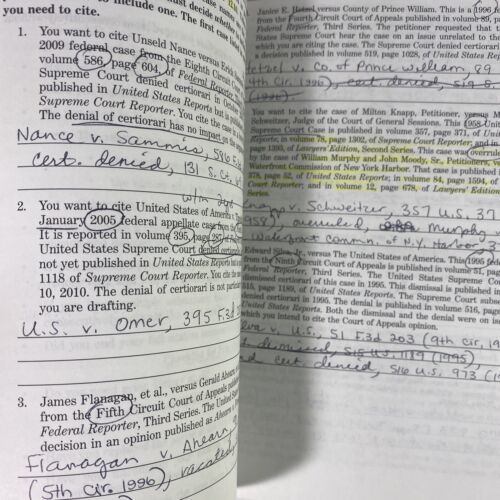 you need to cite.
include one. The first case
1. You want to cite Unseld Nance versus Erick
2009 federal case from the Eighth Circuit
volume 586, page 604, of Federal Reporter,
Supreme Court denied certiorari in October
published in United States Reports but is
Supreme Court Reporter. You cite the case
The denial of certiorari has no impact on the
Nance v. Sammis, 586 F.3d
cert. denied, 131 S. Ct.
2. You want to cite United States of America v.
January 2005 federal appellate case from the
It is reported in volume 395, page 287, of
United States Supreme Court denied certiorari
not yet published in United States Reports
1118 of Supreme Court Reporter. You cite the
10, 2010. The denial of certiorari is not
you are drafting.
U.S. v. Omer, 395 F.3d
3. James Flanagan, et al., versus Gerald Ahearn
from the Fifth Circuit Court of Appeals
Federal Reporter, Third Series. The United
decision in an opinion published as Ahearn
Flanagan v. Ahearn
(5th Cir. 1996), vacated
Janice E. Hetzel versus County of Prince William. This is a 1996
from the Fourth Circuit Court of Appeals published in volume 89,
Federal Reporter, Third Series. The petitioner requested that
States Supreme Court hear the case on an issue unrelated to the
which you are citing the case. The Supreme Court denied certiorari
a decision published in volume 519, page 1028, of United States
Hetzel v. Co. of Prince William, 89
4th Cir. 1996), cert. denied, 519 U.S.
(1996).
You want to cite the case of Milton Knapp, Petitioner, versus
Schweitzer, Judge of the Court of General Sessions. This 1958 United
Supreme Court Case is published in volume 357, page 371, of United
Reports, in volume 78, page 1302, of Supreme Court Reporter, and in
page 1393, of Lawyers' Edition, Second Series. This case was overruled
by the case of William Murphy and John Moody, Sr., Petitioners,
Waterfront Commission of New York Harbor. That case is published
378, page 52, of United States Reports; in volume 84, page 1594, of
Court Reporter; and in volume 12, page 678, of Lawyers' Edition
Knapp v. Schweitzer, 357 U.S. 37
1958), overruled, Murphy
Waterfront Commn. of N.Y. Harbor, 3
Jr., versus The United States of America. This 1995
from the Ninth Circuit Court of Appeals is published in volume 51,
Federal Reporter, Third Series. The United States Supreme
dismissed certiorari of this case in 1995. This dismissal is published
515, page 1189, of United States Reports. The Supreme Court
denied certiorari in 1995. The denial is published in volume 516, page
United States Reports. Both the dismissal and the denial were on
which you intend to cite the Court of Appeals opinion.
v. U.S., 51 F.3d 203 (9th Cir. 19
cert. dismissed, 515 U.S. 1189 (1995),
and cert. denied, 516 U.S. 973 (19